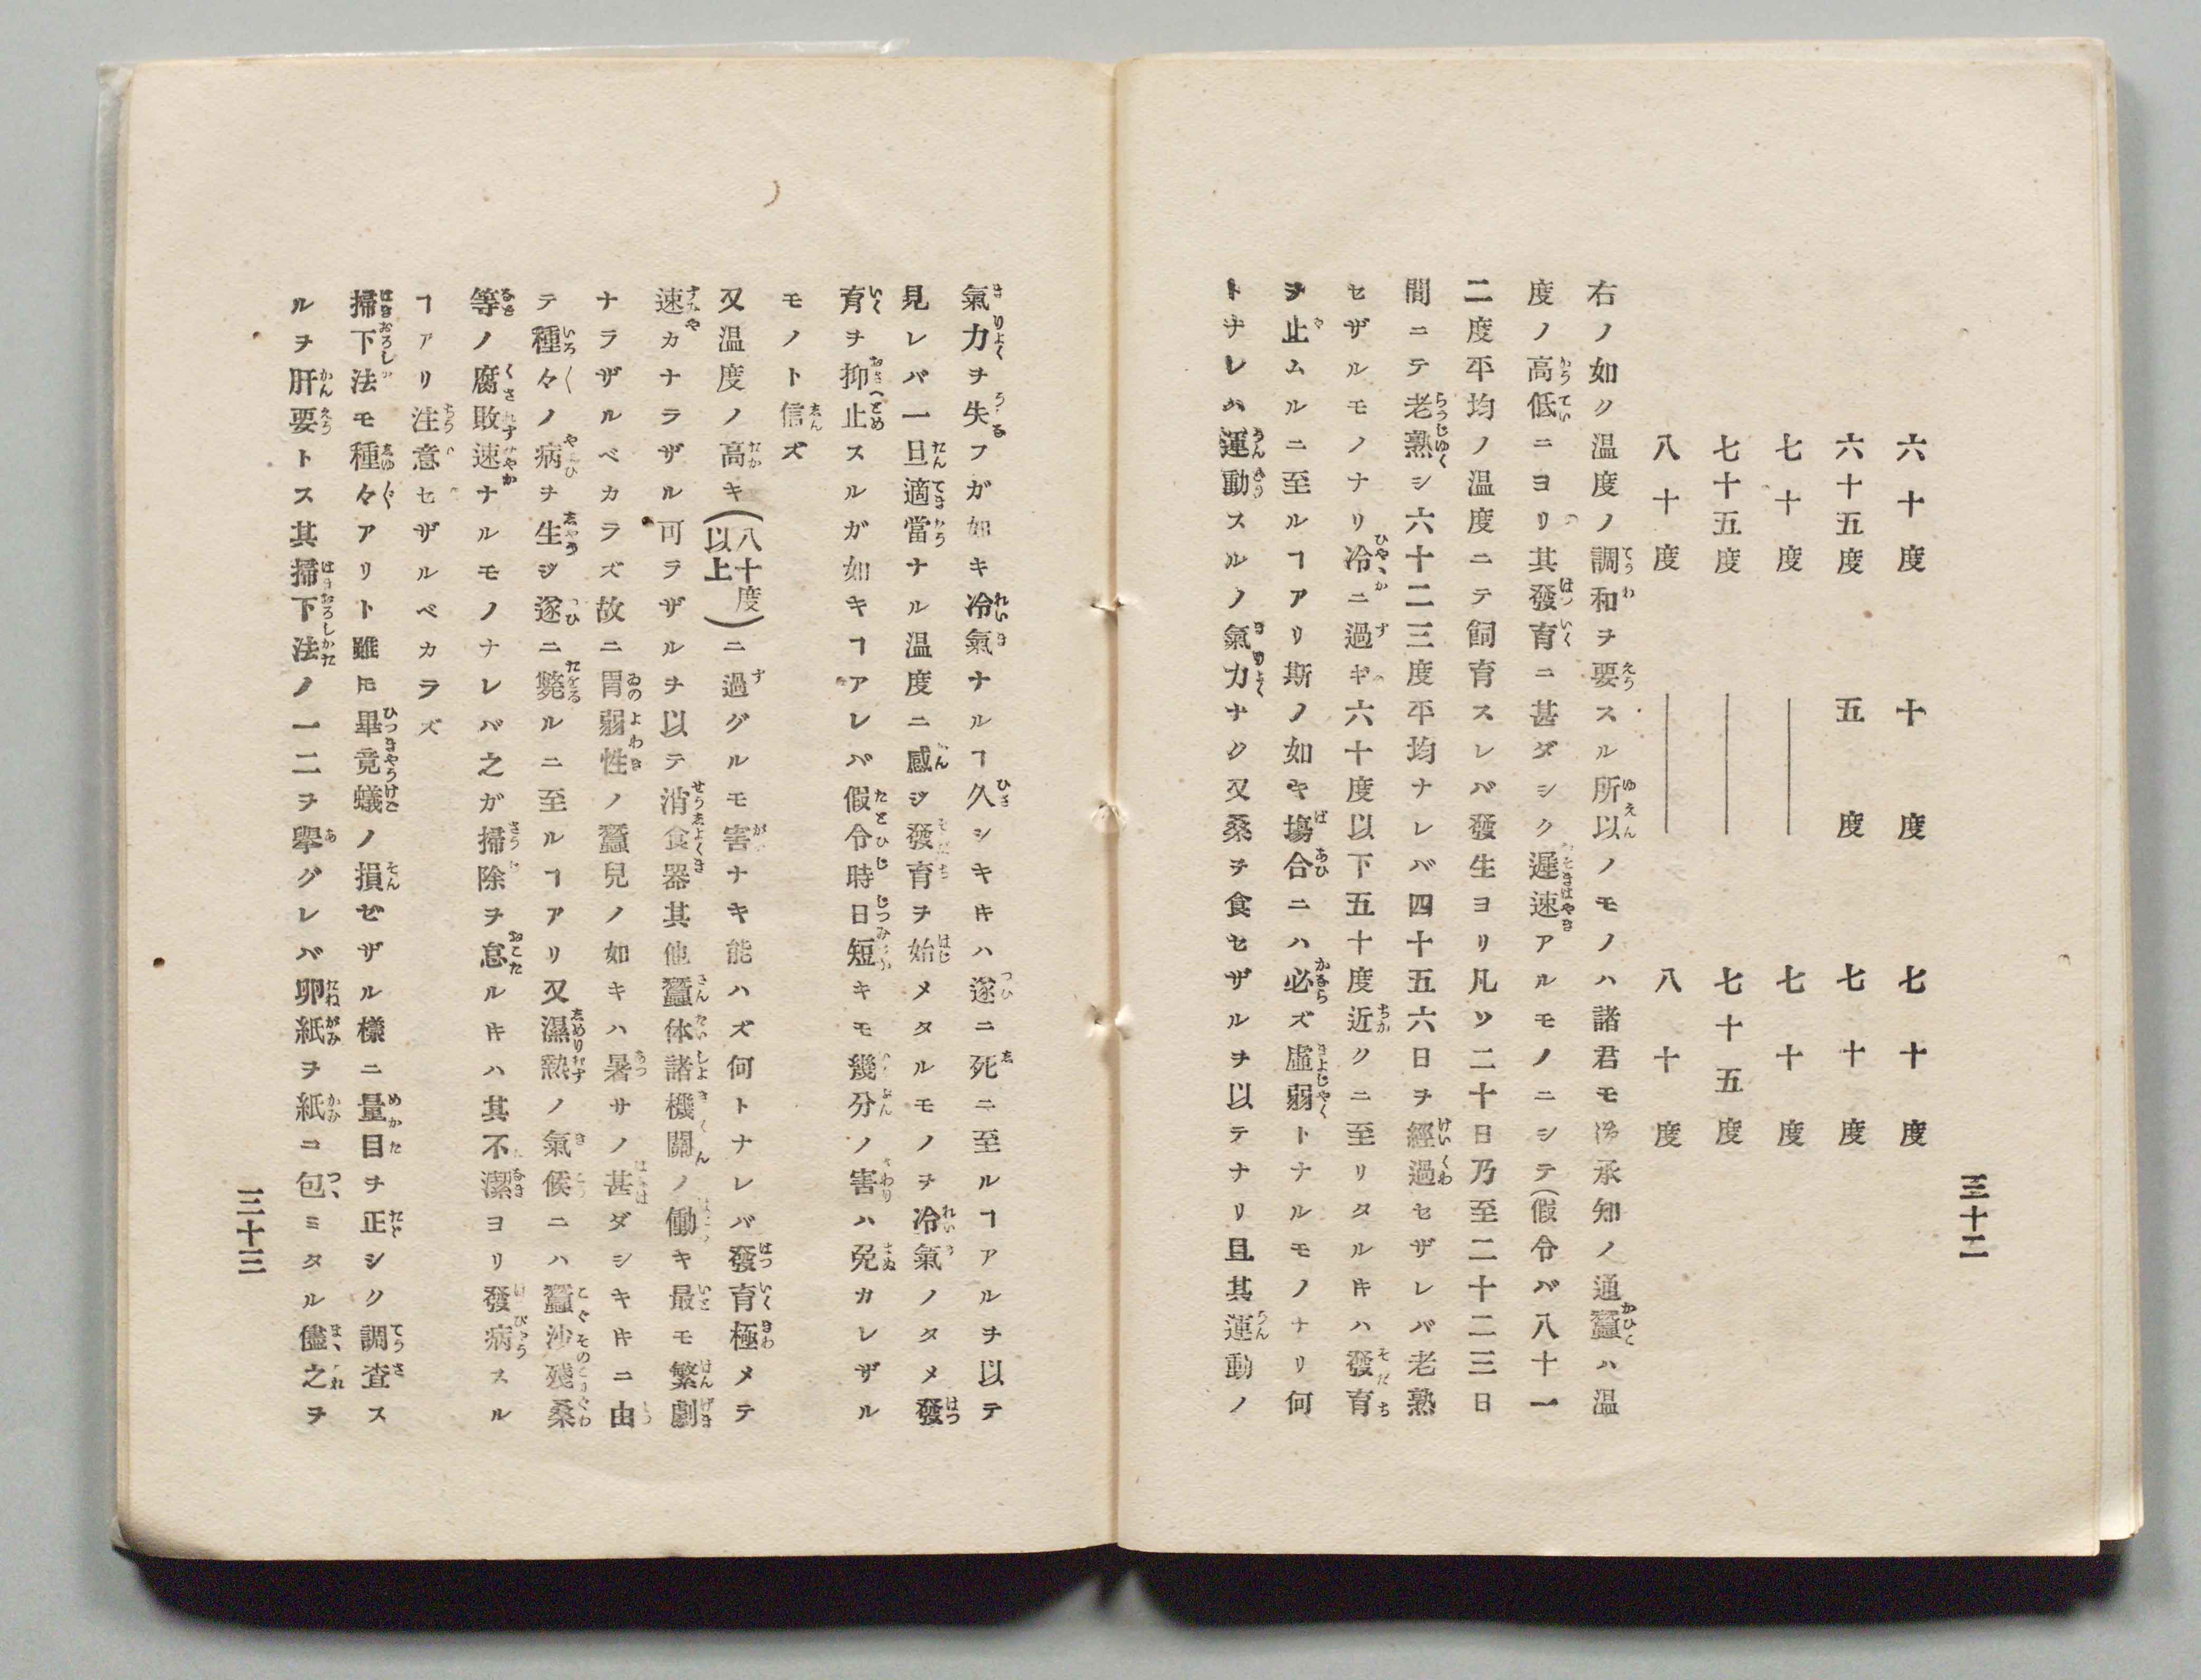 三十二
六十度 十度 七十度
六十五度 五度 七十度
七十度 ─── 七十度
七十五度 ─── 七十五度
八十度 ─── 八十度
右ノ如ク温度ノ調和ヲ要スル所以ノモノハ諸君モ承知ノ通蠶ハ温
度ノ高低ニヨリ其發育ニ甚ダシク遲速アルモノニシテ(假令バ八十一
二度平均ノ温度ニテ飼育スレバ發生ヨリ凡ソ二十日乃至二十二三日
間ニテ老熟シ六十二三度平均ナレバ四十五六日ヲ經過セザレバ老熟
セザルモノナリ冷ニ過ギ六十度以下五十度近クニ至リタルキハ發育
ヲ止ムルニ至ルヿアリ斯ノ如キ塲合ニハ必ズ虚弱トナルモノナリ何
トナレハ運動スルノ氣力ナク又桑ヲ食セザルヲ以テナリ且其運動ノ
氣力ヲ失フガ如キ冷氣ナルヿ久シキキハ遂ニ死ニ至ルヿアルヲ以テ
見レバ一旦適當ナル温度ニ感ジ發育ヲ始メタルモノヲ冷氣ノタメ發
育ヲ抑止スルガ如キヿアレバ假令時日短キモ幾分ノ害ハ免カレザル
モノト信ズ
又温度ノ高キ(八十度以上)ニ過グルモ害ナキ能ハズ何トナレバ發育極メテ
速カナラザル可ラザルヲ以テ消食器其他蠶体諸機關ノ働キ最モ繁劇
ナラザルベカラズ故ニ胃弱性ノ蠶兒ノ如キハ暑サノ甚ダシキキニ由
テ種々ノ病ヲ生ジ遂ニ斃ルニ至ルヿアリ又濕熱ノ氣候ニハ蠶沙殘桑
等ノ腐敗速ナルモノナレバ之ガ掃除ヲ怠ルキハ其不潔ヨリ發病スル
ヿアリ注意セザルベカラズ
掃下法モ種々アリト雖𪜈畢竟蟻ノ損ゼザル樣ニ量目ヲ正シク調査ス
ルヲ肝要トス其掃下法ノ一二ヲ擧グレバ卵紙ヲ紙コ包ミタル儘之ヲ
三十三